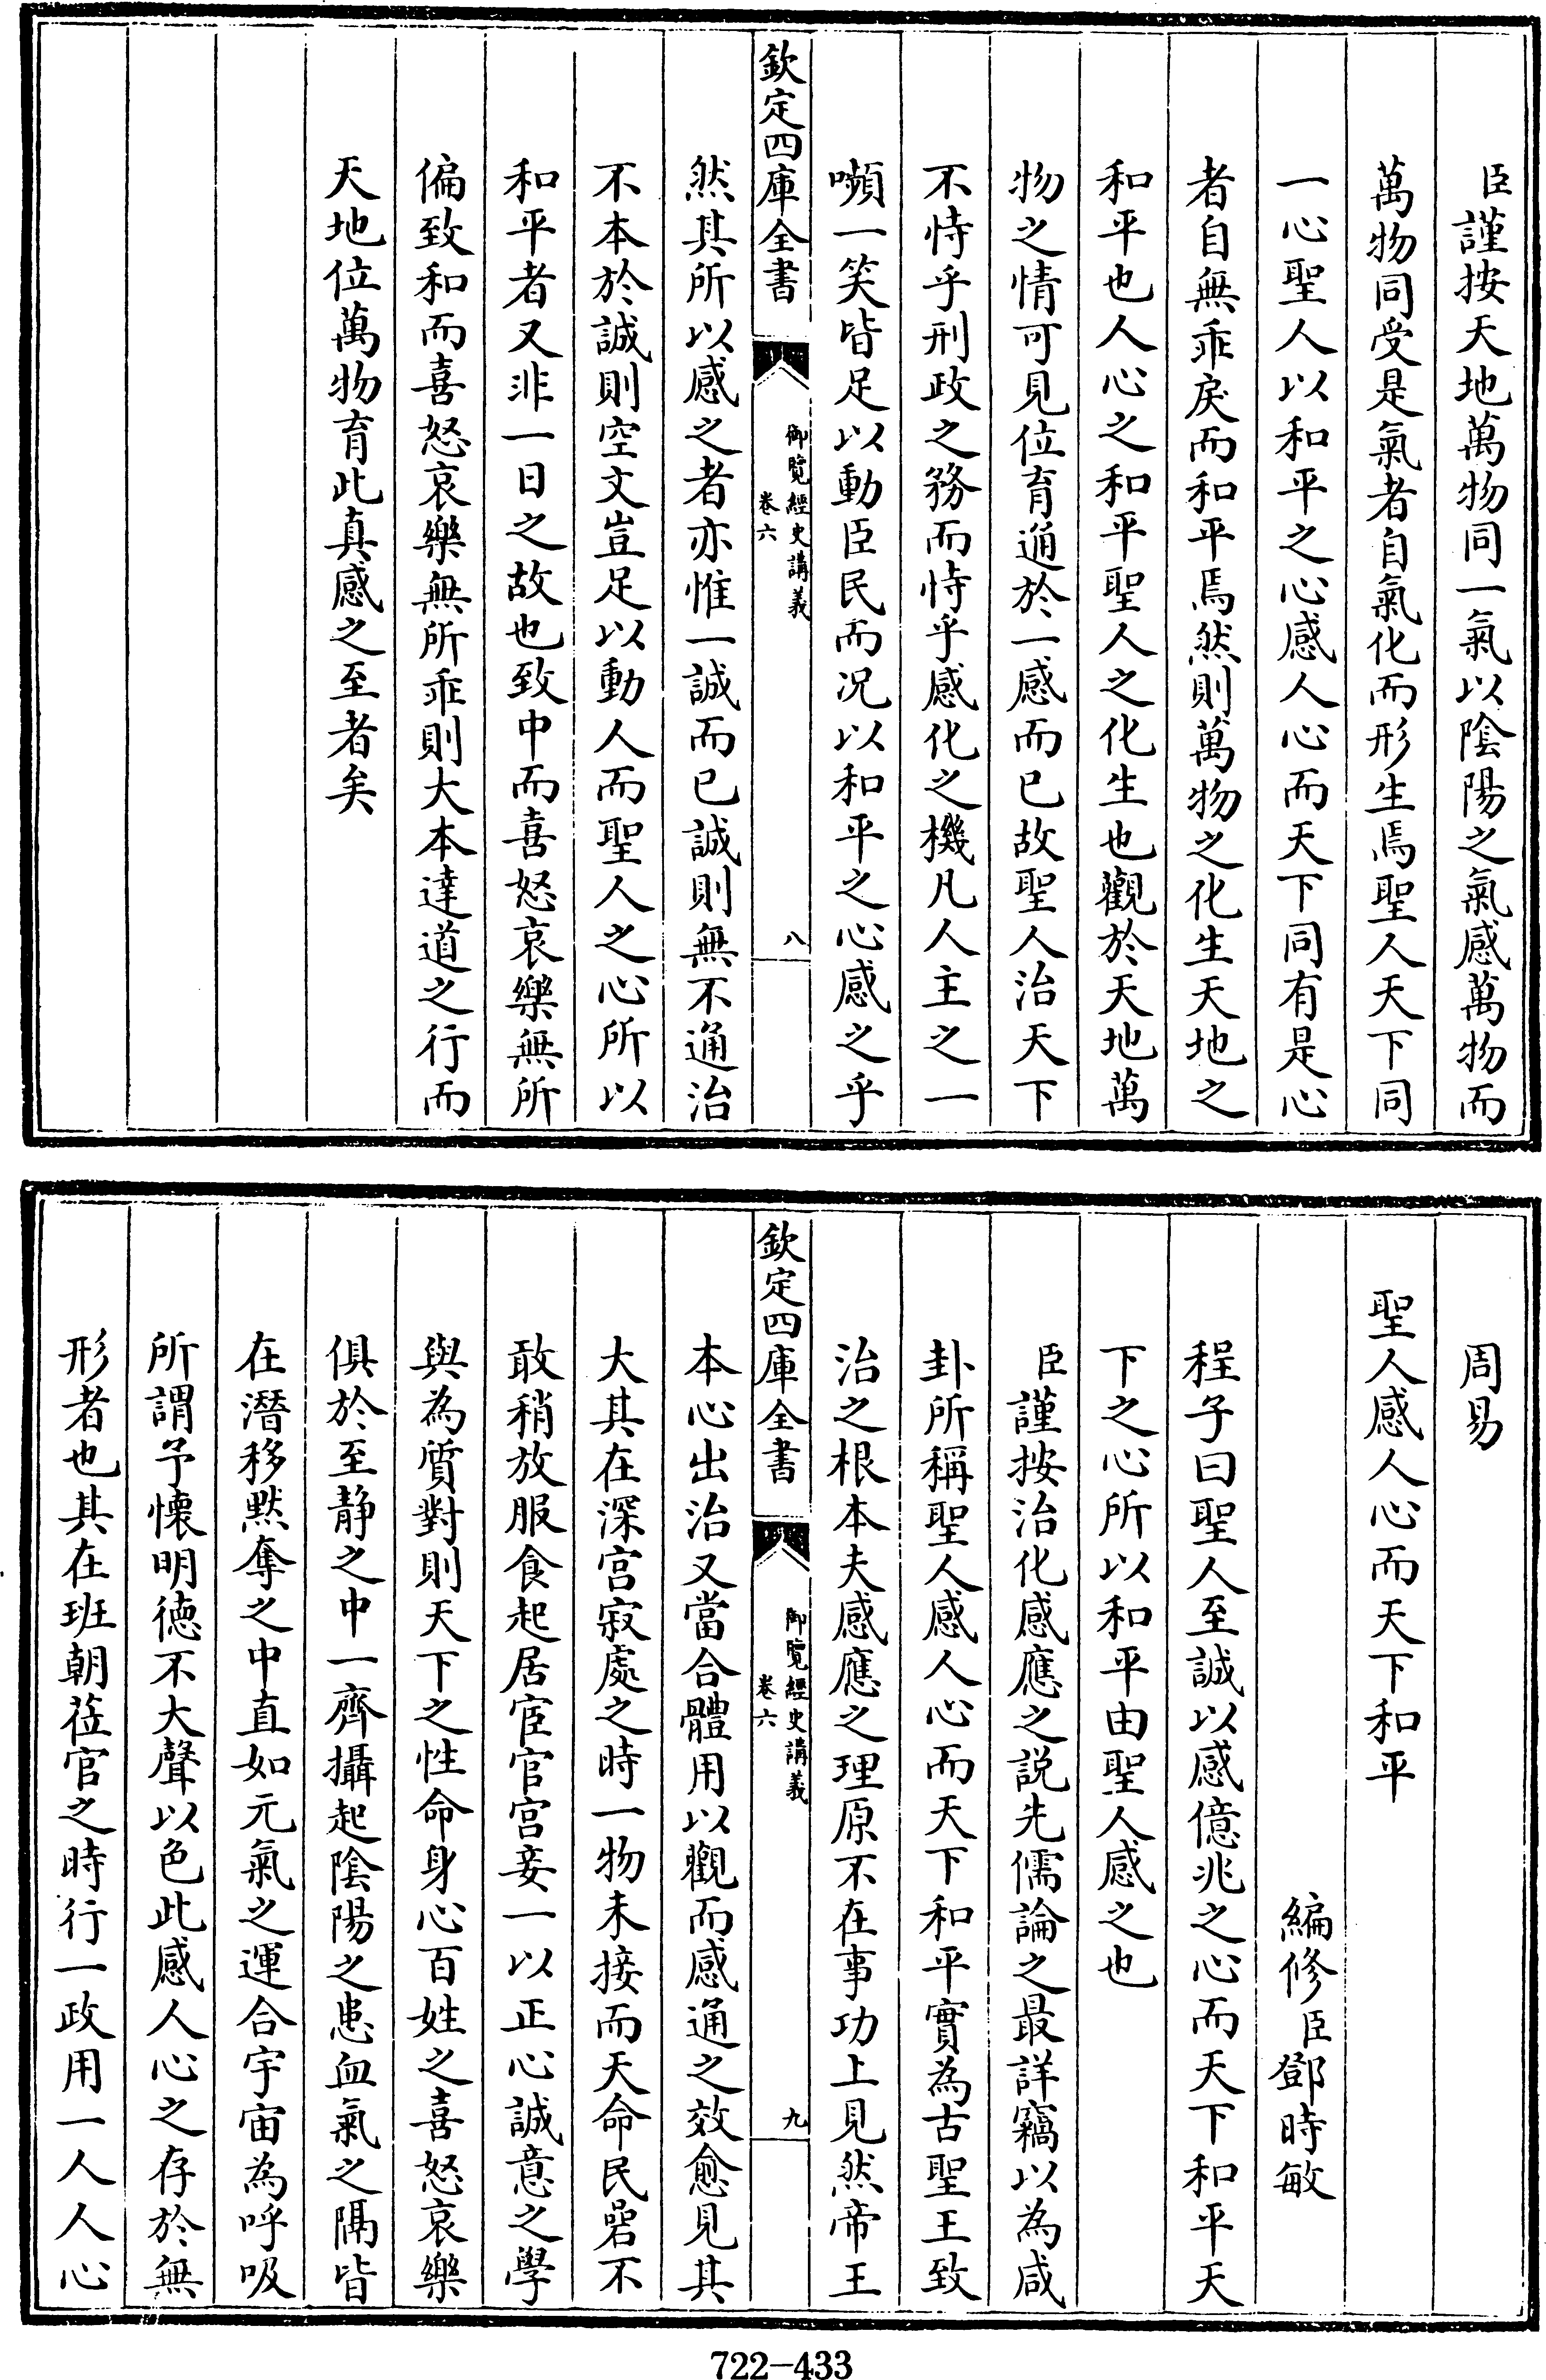 臣謹按天地萬物同一氣以陰陽之氣感萬物而
萬物同受是氣者自氣化而形生焉聖人天下同
一心聖人以和平之心感人心而天下同有是心
者自無乖戾而和平焉然則萬物之化生天地之
和平也人心之和平聖人之化生也觀於天地萬
物之情可見位育通於一感而已故聖人治天下
不恃乎刑政之務而恃乎感化之機凡人主之一
嚬一笑皆足以動臣民而况以和平之心感之乎
欽定四庫全書
御覽經史講義
卷六
八
然其所以感之者亦惟一誠而已誠則無不通治
不本於誠則空文豈足以動人而聖人之心所以
和平者又非一日之故也致中而喜怒哀樂無所
偏致和而喜怒哀樂無所乖則大本達道之行而
天地位萬物育此真感之至者矣
周易
聖人感人心而天下和平
編修臣鄧時敏
程子曰聖人至誠以感億兆之心而天下和平天
下之心所以和平由聖人感之也
臣謹按治化感應之説先儒論之最詳竊以為咸
卦所稱聖人感人心而天下和平實為古聖王致
治之根本夫感應之理原不在事功上見然帝王
欽定四庫全書
御覽經史講義
卷六
九
本心出治又當合體用以觀而感通之效愈見其
大其在深宫寂處之時一物未接而天命民碞不
敢稍放服食起居宦官宫妾一以正心誠意之學
與為質對則天下之性命身心百姓之喜怒哀樂
俱於至静之中一齊攝起陰陽之患血氣之隔皆
在潛移黙奪之中直如元氣之運合宇宙為呼吸
所謂予懷明徳不大聲以色此感人心之存於無
形者也其在班朝莅官之時行一政用一人人心
722-433